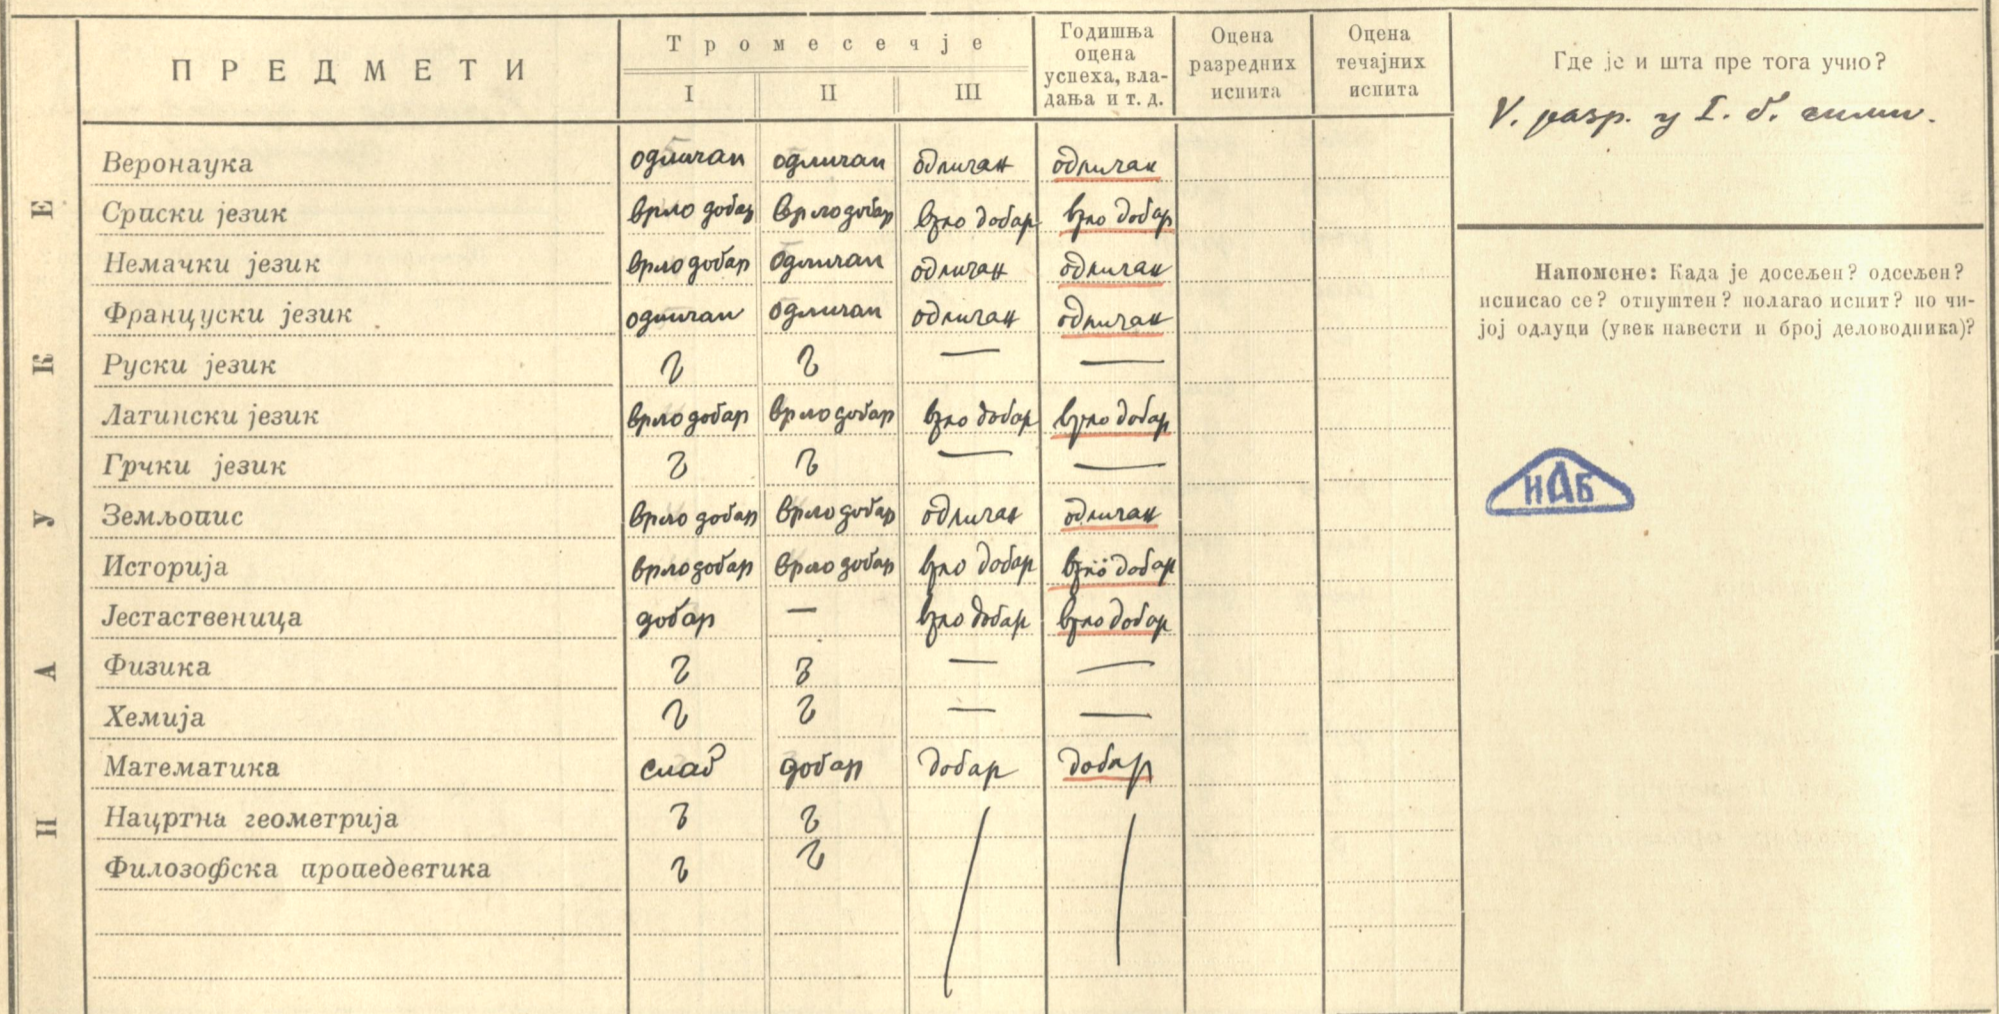 ПРЕДМЕТИ Тромесечје Годишња оцена успеха, владања и т. д. Оцена разредних испита Оцена течајних испита
I II III
Где је и шта пре тога учио?
V. разр. у I. б. гимн.
НАУКЕ
Веронаука одличан одличан одличан одличан
Српски језик врло добар врло добар врло добар врло добар
Немачки језик врло добар одличан одличан одличан
Француски језик одличан одличан одличан одличан
Руски језик — —
Латински језик врло добар врло добар врло добар врло добар
Грчки језик — —
Земљопис врло добар врло добар одличан одличан
Историја врло добар врло добар врло добар врло добар
Јестаственица добар — врло добар врло добар
Физика — —
Хемија — —
Математика слаб добар добар добар
Нацртна геометрија
Филозофска пропедевтика
Напомене: Када је досељен? одсељен?
исписао се? отпуштен? полагао испит? по чи-
јој одлуци (увек навести и број деловодника)?
НАБ